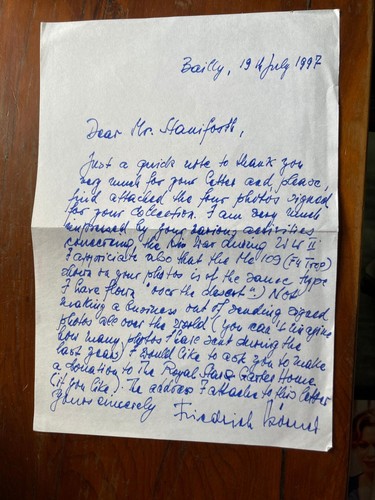 Bailly, 19th July 1997
Dear Mr. Staniforth,
Just a quick note to thank you
very much for your letter and, please,
find attached the four photos signed
for your collection. I am very much
impressed by your various activities
concerning the Air War during WW II.
I appreciate also that the Me 109 (F4 Trop)
shown on your photos is of the same type
I have flown "over the desert". Not
making a business out of sending signed
photos all over the world (you can't imagine
how many photos I have sent during the
last years) I would like to ask you to make
a donation to The Royal Star & Garter Home
(if you like). The address I attache to this letter
Yours sincerely Friedrich Körner